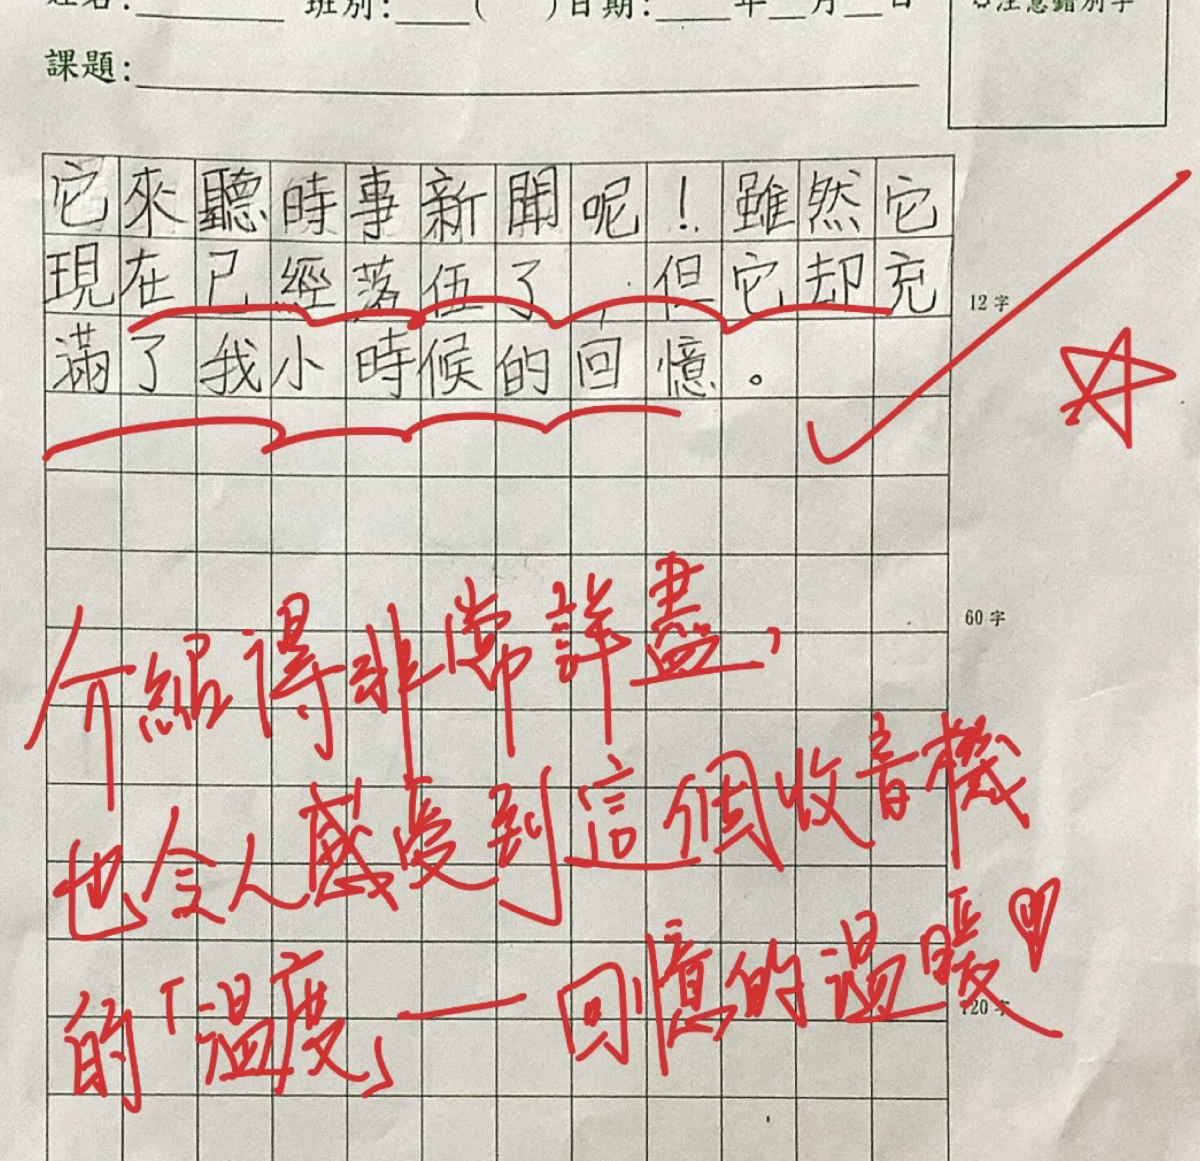 姓名:　　　班別:　　(　　)日期:　　年　月　日
✩注意錯別字
課題:
它來聽時事新聞呢！雖然它
現在已經落伍了，但它却充
12字
滿了我小時候的回憶。
60字
介紹得非常詳盡，
也令人感受到這個收音機
的「溫度」—回憶的溫暖
120字